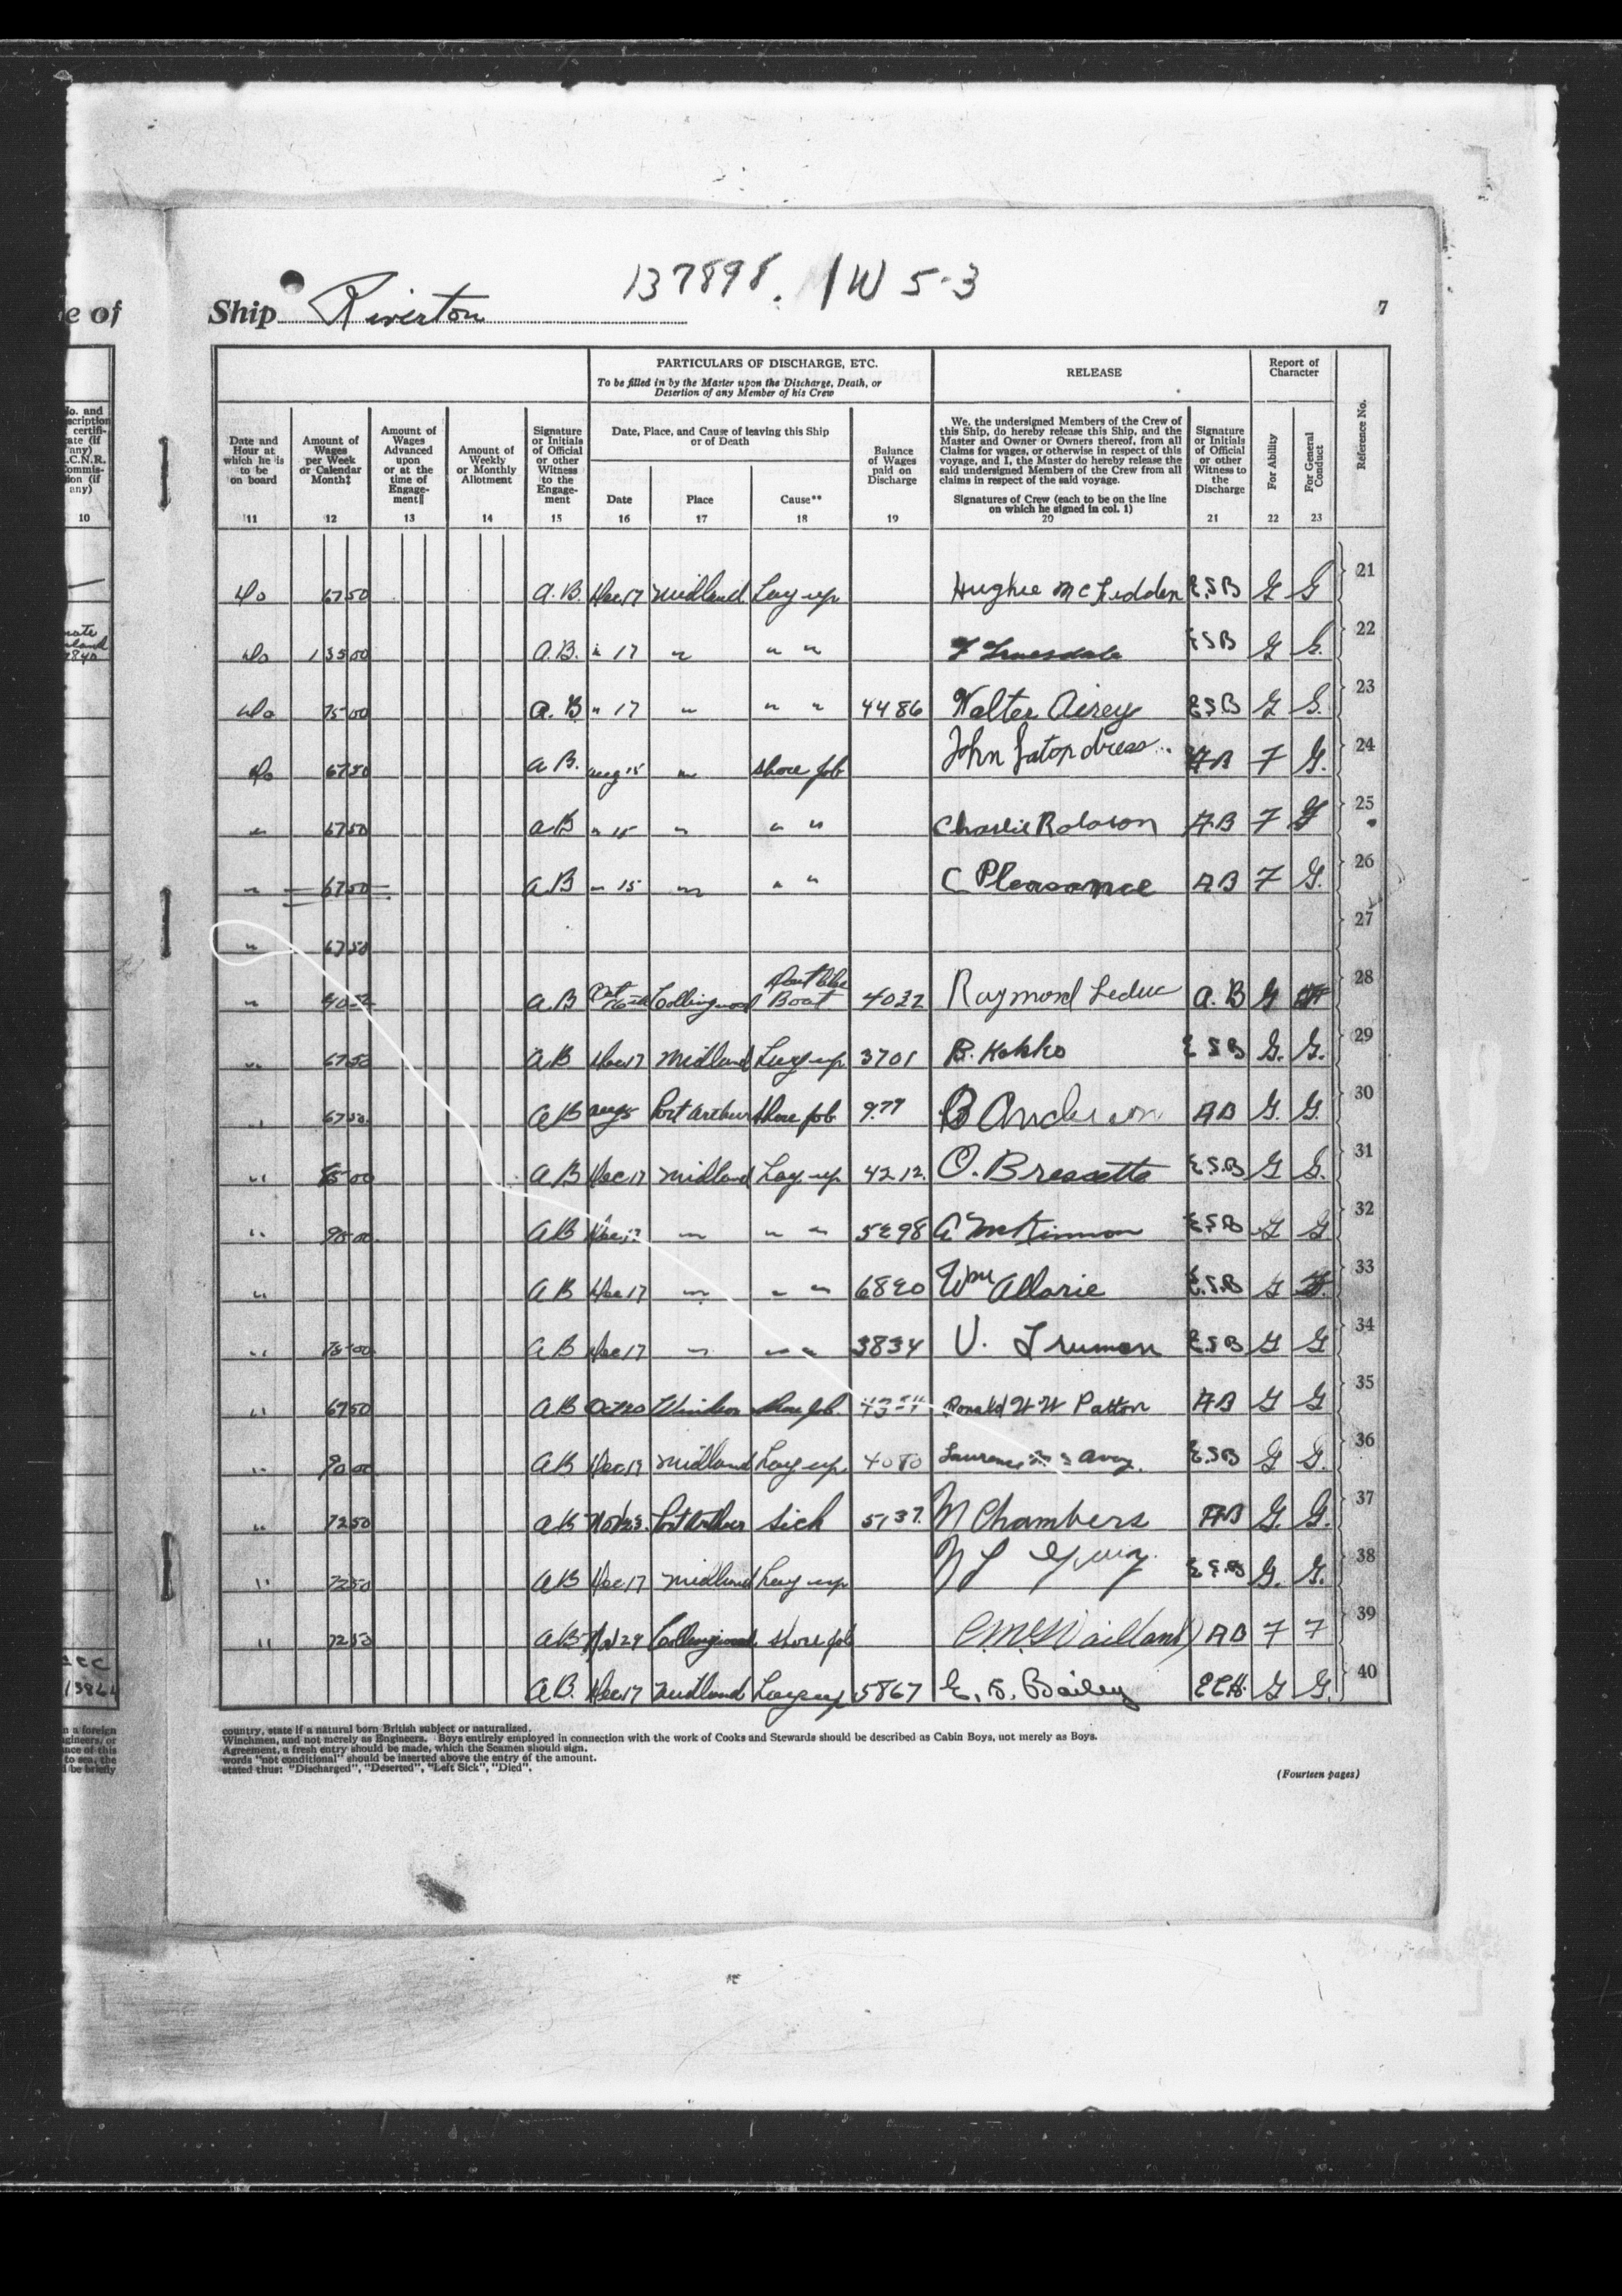 137898. /W 5-3
e of Ship Riverton 7
PARTICULARS OF DISCHARGE, ETC.
To be filled in by the Master upon the Discharge, Death, or
Desertion of any Member of his Crew
RELEASE
Report of
Character
No. and
scription
certifi-
cate (if
any)
.C.N.R.
Commis-
sion (if
any)
10
Date and
Hour at
which he is
to be
on board
11
Amount of
Wages
per Week
or Calendar
Month‡
12
Amount of
Wages
Advanced
upon
or at the
time of
Engage-
ment‖
13
Amount of
Weekly
or Monthly
Allotment
14
Signature
or Initials
of Official
or other
Witness
to the
Engage-
ment
15
Date, Place, and Cause of leaving this Ship
or of Death
Date
16
Place
17
Cause**
18
Balance
of Wages
paid on
Discharge
19
We, the undersigned Members of the Crew of
this Ship, do hereby release this Ship, and the
Master and Owner or Owners thereof, from all
Claims for wages, or otherwise in respect of this
voyage, and I, the Master do hereby release the
said undersigned Members of the Crew from all
claims in respect of the said voyage.
Signatures of Crew (each to be on the line
on which he signed in col. 1)
20
Signature
or Initials
of Official
or other
Witness to
the
Discharge
21
For Ability
22
For General
Conduct
23
Reference No.
Do 67 50 A.B. Dec 17 Midland Lay up Hughie McFedden E.S.B G G 21
Do 135 00 A.B. " 17 " " " F Truesdale E S B G G. 22
Do 75 00 A.B " 17 " " " 44 86 Walter Airey E S B G G. 23
Do 67 50 A B. Aug 15 " Shore job John AB 7 G. 24
" 67 50 A.B " 15 " " " Charlie Robson A.B 7 G 25
" 67 50 A.B " 15 " " " C Pleasance AB 7 G. 26
" 67 50 27
" A B Collingwood Boat 40 22 Raymond Leduc A. B G 28
" 67 50 A B Dec 17 Midland Lay up 37 01 B. Kokko E S B G. G. 29
" 67 50 A B Aug 5 Port Arthur Shore job 9.79 B Anderson AB G. G. 30
" 85 00 A B Dec 17 Midland Lay up 42 12. O. Bressette E.S.B G G. 31
" 90 00 A B Dec 17 " " " 52 98 A. McKinnon E.S.B G G 32
" A B Dec 17 " " " 68 20 Wm Allarie E.S.B G 33
" 75 00 A B Dec 17 " " " 38 34 V. Truman E.S.B G G 34
" 67 50 A B Oct 20 Windsor Shore job. Ronald W W Patton AB G G 35
" 90 00 A B Dec 17 Midland Lay up 40 80 Laurence Avery. E.S.B G G. 36
" 72 50 A B Nov 23. Port Arthur Sick 51 37. N Chambers AB G. G. 37
" 72 50 A B Dec 17 Midland Lay up E.S.B G. G. 38
" 72 50 A B Nov 29 Collingwood Shore job AB 7 7 39
A B. Dec 17 Midland Lay up 58 67 E. S. Bailey G G. 40
n a foreign
ngineers, or
nce of this
to sea, the
l be briefly
country, state if a natural born British subject or naturalized.
Winchmen, and not merely as Engineers. Boys entirely employed in connection with the work of Cooks and Stewards should be described as Cabin Boys, not merely as Boys.
Agreement, a fresh entry should be made, which the Seamen should sign.
words "not conditional" should be inserted above the entry of the amount.
stated thus: "Discharged", "Deserted", "Left Sick", "Died".
(Fourteen pages)